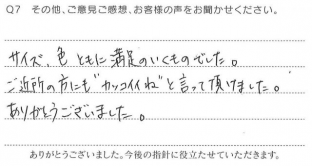 Q7 その他、ご意見ご感想、お客様の声をお聞かせください。
サイズ、色 ともに満足のいくものでした。
ご近所の方にも"カッコイイね"と言って頂けました。
ありがとうございました。
ありがとうございました。今後の指針に役立たせていただきます。